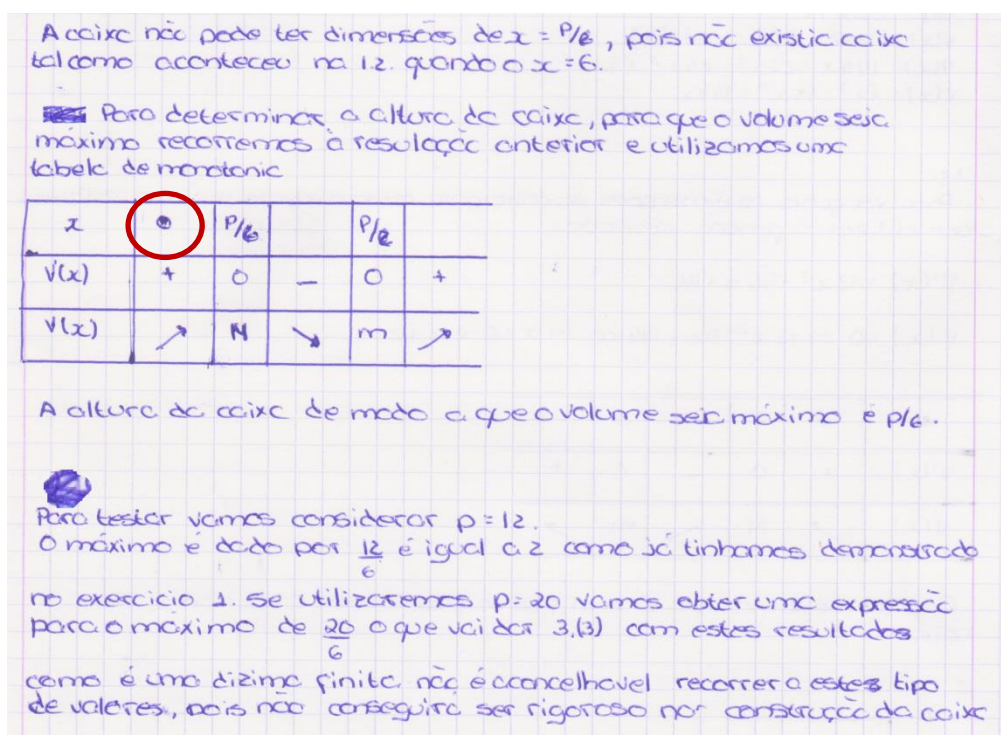 A caixa não pode ter dimensões de x = P/6, pois não existia caixa
tal como aconteceu na 1.2. quando o x = 6.
Para determinar a altura da caixa, para que o volume seja
máximo recorremos à resolução anterior e utilizamos uma
tabela de monotonia
x P/6 P/2
V'(x) + 0 - 0 +
V(x) ↗ M ↘ m ↗
A altura da caixa de modo a que o volume seja máximo é P/6.
Para testar vamos considerar p = 12.
O máximo é dado por 12/6 é igual a 2 como já tinhamos demonstrado
no exercicio 1. Se utilizaremos p = 20 vamos obter uma expressão
para o máximo de 20/6 o que vai dar 3,(3) com estes resultados
como é uma dizima finita não é aconcelhavel recorrer a estes tipo
de valores, pois não conseguirá ser rigoroso na construção da caixa